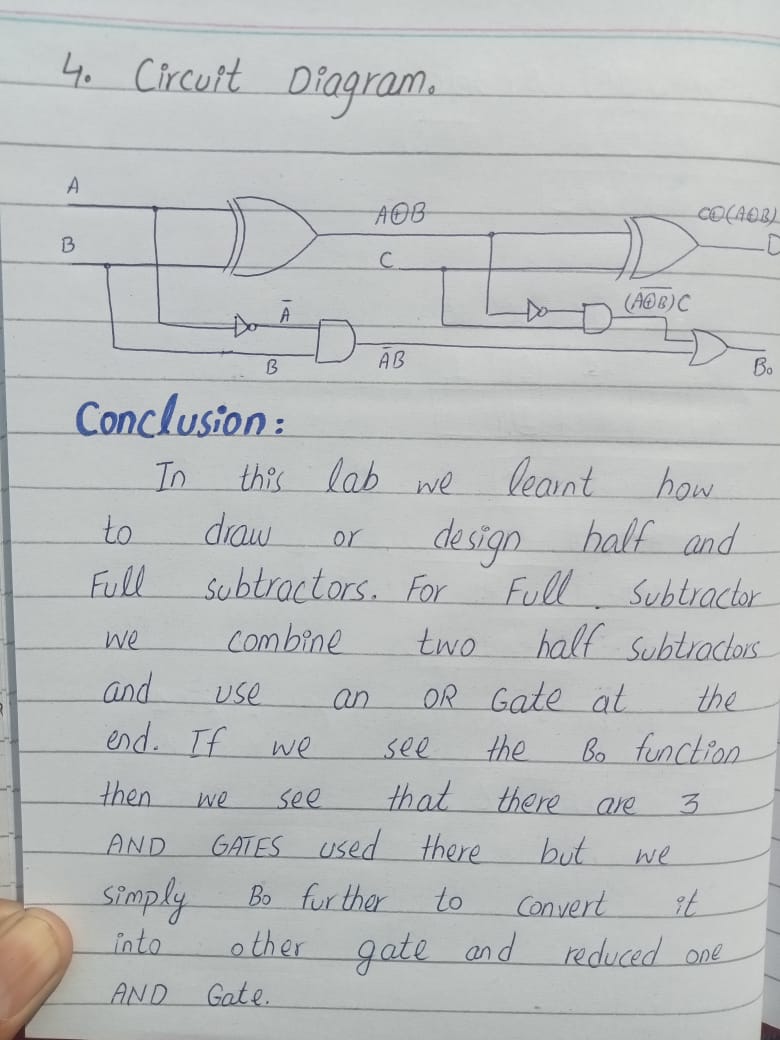 4. Circuit Diagram.
A
A⊕B
C⊕(A⊕B)
B
C
D
Ā
(A̅⊕̅B̅)C
B
ĀB
Bo
Conclusion:
In this lab we learnt how
to draw or design half and
Full subtractors. For Full Subtractor
we combine two half subtractors
and use an OR Gate at the
end. If we see the Bo function
then we see that there are 3
AND GATES used there but we
simply Bo further to convert it
into other gate and reduced one
AND Gate.